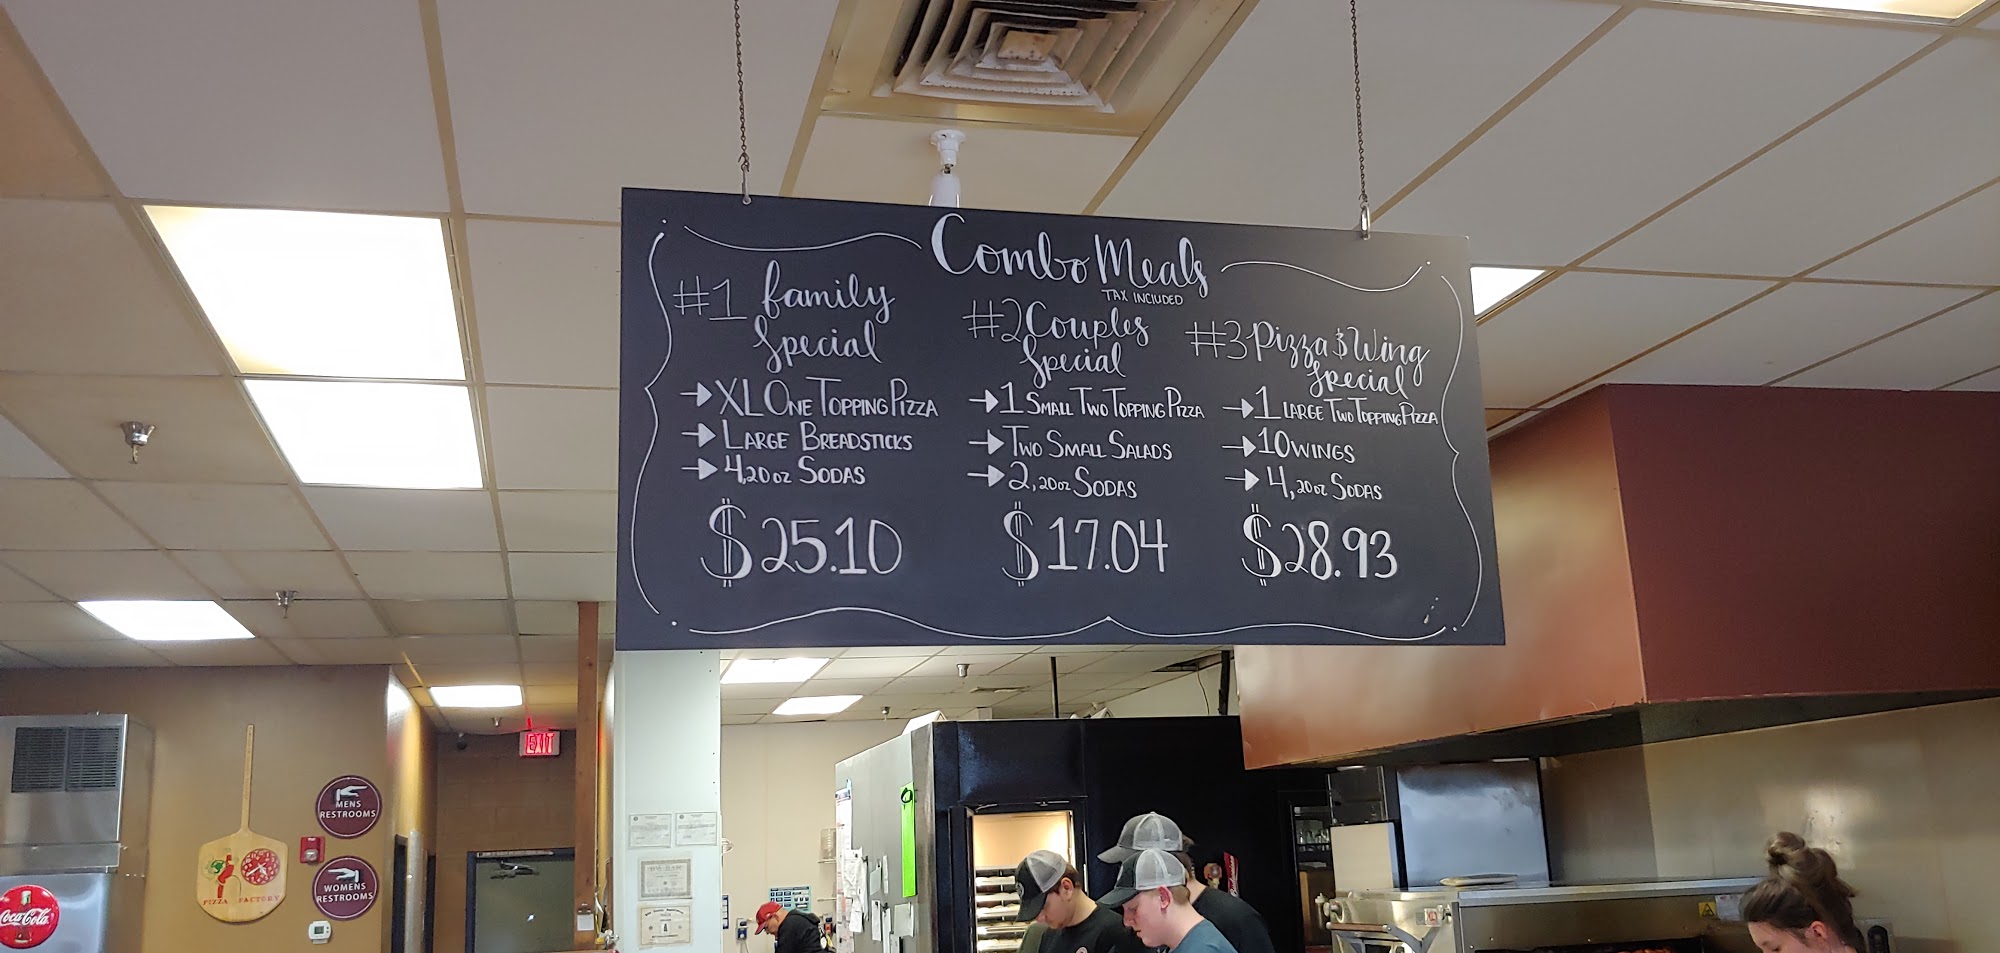 Combo Meals
TAX INCLUDED
#1 family
Special
→ XL ONE TOPPING PIZZA
→ LARGE BREADSTICKS
→ 4, 20oz SODAS
$25.10
#2 Couples
Special
→ 1 SMALL TWO TOPPING PIZZA
→ TWO SMALL SALADS
→ 2, 20oz SODAS
$17.04
#3 Pizza & Wing
Special
→ 1 LARGE TWO TOPPING PIZZA
→ 10 WINGS
→ 4, 20oz SODAS
$28.93
EXIT
MENS
RESTROOMS
WOMENS
RESTROOMS
PIZZA FACTORY
Coca-Cola